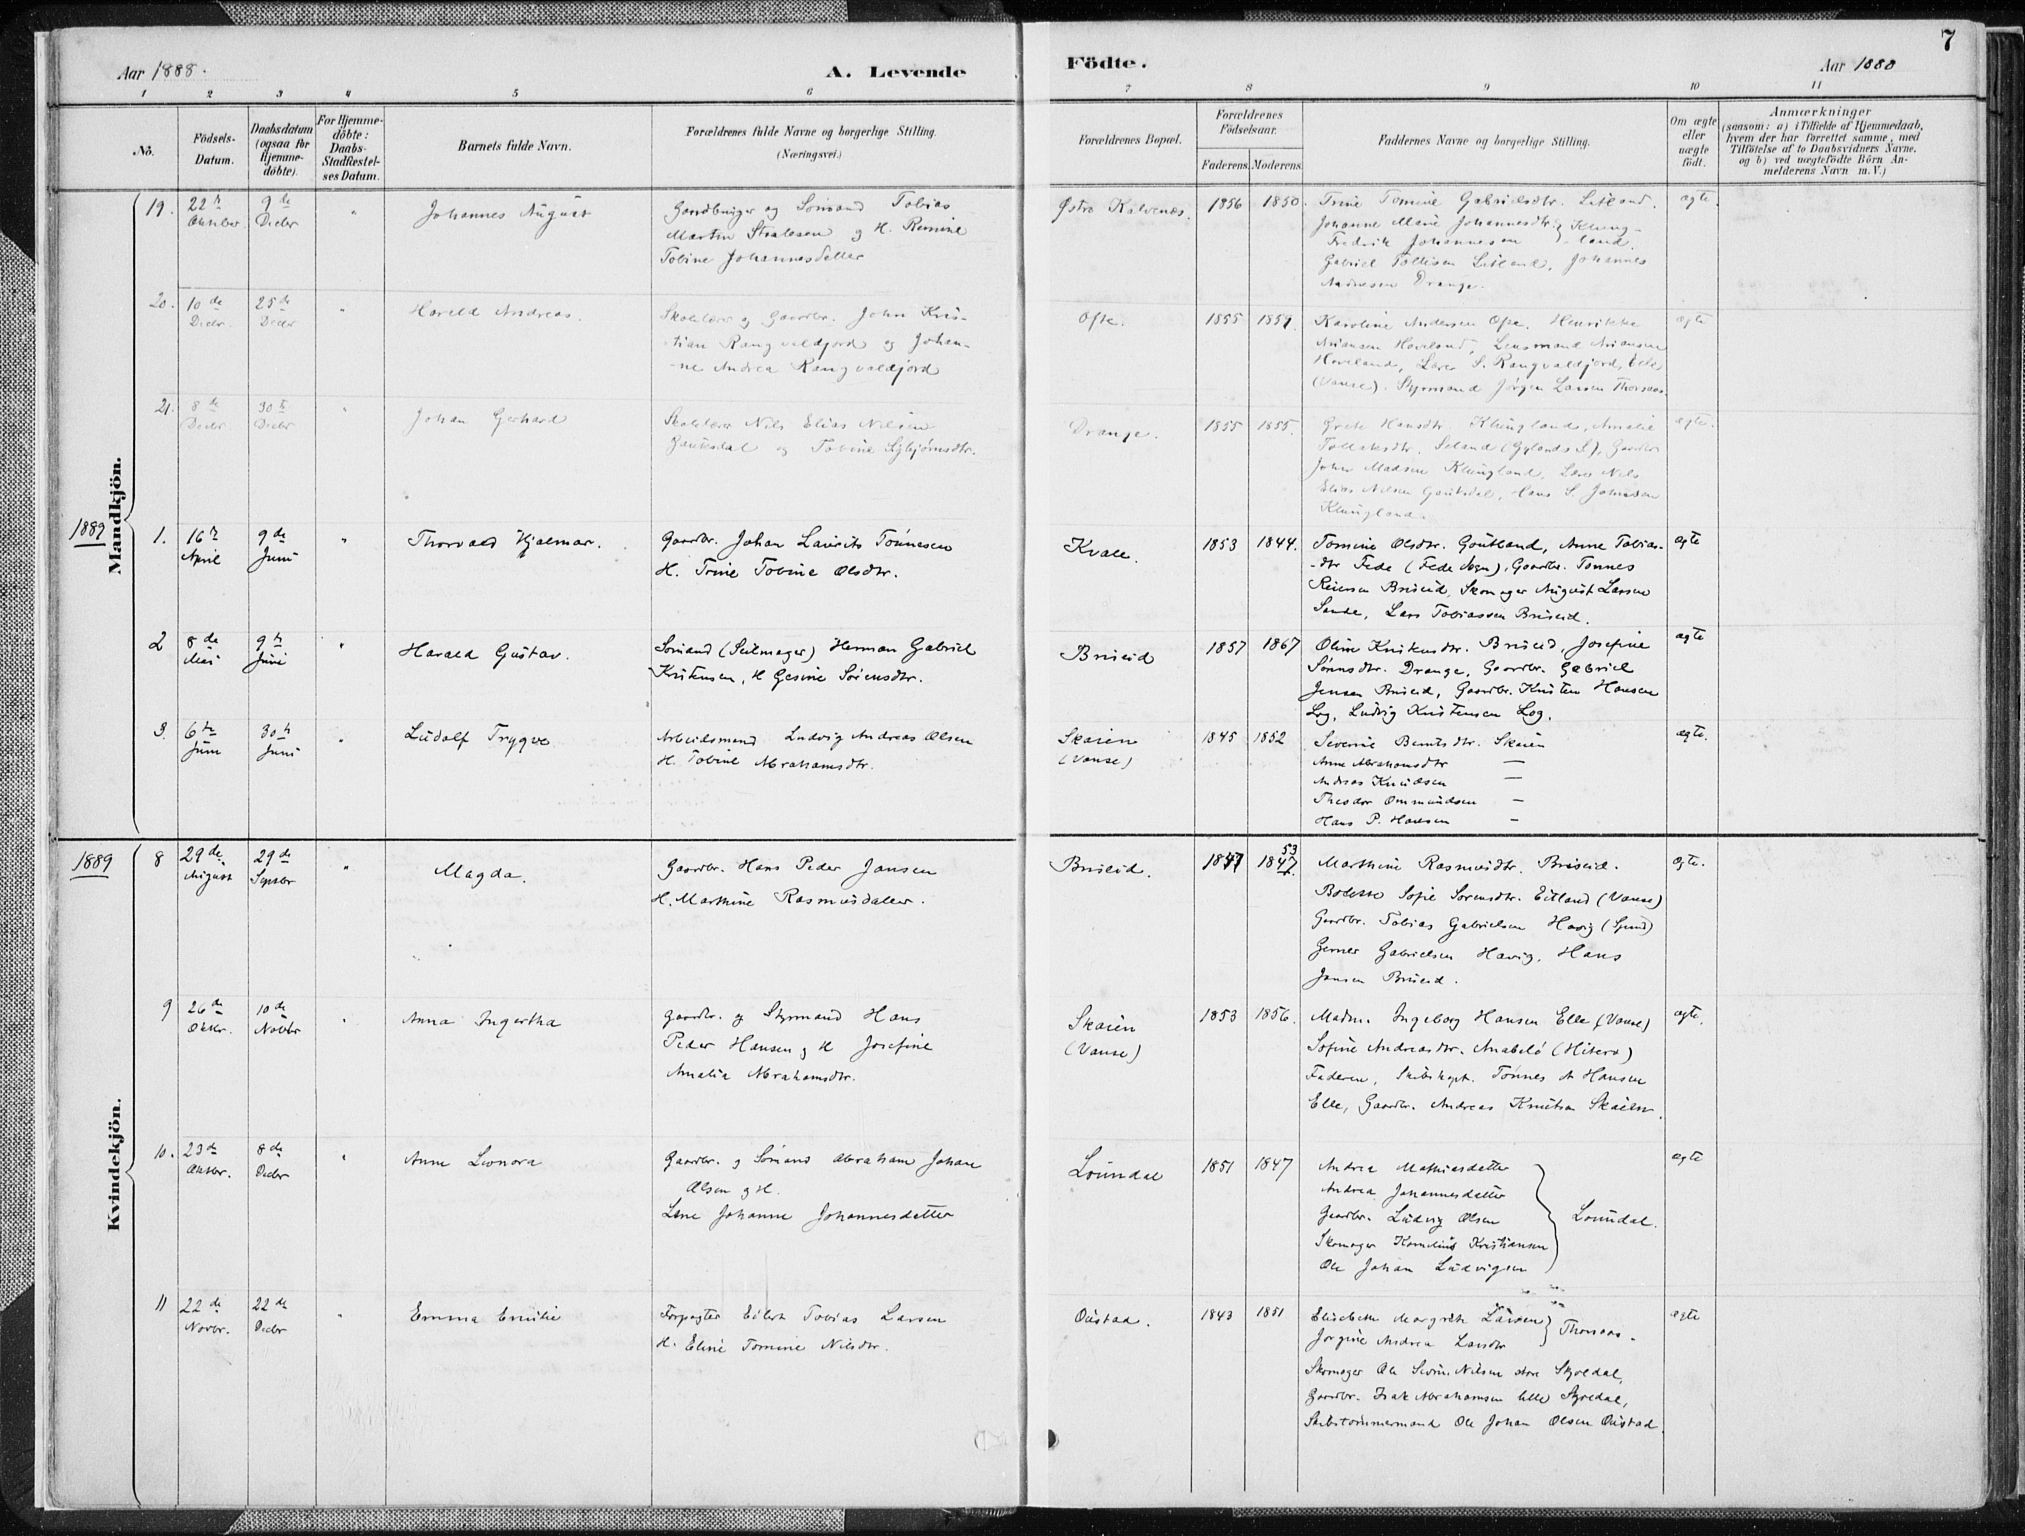 7
Aar 1888.
A. Levende
Födte.
Aar 1888
1 2 3 4 5 6 7 8 9 10 11
No.
Födsels-
Datum.
Daabsdatum
(ogsaa for
Hjemme-
döbte).
For Hjemme-
döbte:
Daabs-
Stadfæstel-
ses Datum.
Barnets fulde Navn.
Forældrenes fulde Navne og borgerlige Stilling.
(Næringsvei.)
Forældrenes Bopæl.
Forældrenes
Födselsaar.
Faderens. Moderens.
Faddernes Navne og borgerlige Stilling.
Om ægte
eller
uægte
født.
Anmærkninger
(saasom: a) i Tilfælde af Hjemmedaab,
hvem der har forrettet samme, med
Tilföielse af to Daabsvidners Navne,
og b) ved uægtefödte Börn An-
melderens Navn m. V.)
Mandkjön.
19. 22 Oktober 9de Decbr " Johannes August
Gaardbruger og Sømand Tobias
Martin Stralesen og H. Remine
Tobine Johannesdatter
Østre Kalvenes. 1856 1850.
Trine Tomine Gabrielsdtr. Litland.
Johanne Marie Johannesdtr } Klung-
Fredrik Johannesen land.
Gabriel Tollisen Litland, Johannes
Drange.
ægte.
20. 10de Decbr. 25de Decbr " Harald Andreas.
Skolelærer og Gaardbr. John Kris-
tian Rangvaldfjord og Johan-
-ne Andrea Rangvaldfjord
Ofte. 1855 1859.
Karoline Andersen Ofte. Henrikke
Ariansen Hoveland, Lensmand Ariansen
Hoveland, Lærer S. Rangvaldfjord, Elle
(Vanse). Styrmand Jørgen Larsen Thorsaas.
ægte
21. 8de Decbr 30te Decbr " Johan Gerhard
Skolelærer Nils Elias Nilsen
Gauksdal og Tobine Sigbjørnsdtr.
Drange. 1855 1855.
Grete Hansdtr. Klungland, Amalie
Tollaksdtr. Seland (Gylands S), Gaardbr
Johan Madsen Klungland, Lærer Nils
Elias Nilsen Gauksdal, Hans S. Johnsen
Klungland.
ægte.
1889
1. 16te April 9de Juni " Thorvald Hjalmar.
Gaardbr. Johan Laurits Tønnesen
H. Trine Tobine Olsdtr.
Kvale. 1853 1844.
Tomine Olsdtr. Goutland, Anne Tobias-
-dtr Fede (Fede Sogn), Gaardbr. Tønnes
Reiersen Briseid, Skomager August Larsen
Sande, Lars Tobiassen Briseid.
ægte
2 8de Mai 9de Juni " Harald Gustav.
Sømand (Seilmager) Herman Gabriel
Kristensen, H Gesine Sørensdtr.
Briseid 1857 1867
Oline Kristensdtr. Briseid, Josefine
Sørensdtr. Drange, Gaardbr. Gabriel
Jensen Briseid, Gaardbr. Kristen Hansen
Log, Ludvig Kristensen Log.
ægte
3. 6te Juni 30te Juni " Ludolf Trygve
Arbeidsmand Ludvig Andreas Olsen
H. Tobine Abrahamsdtr.
Skaien
(Vanse)
1845 1852
Severine Berntsdtr. Skaien
Anne Abrahamsdtr —
Andreas Knudsen —
Theodor Ommundsen —
Hans P. Hansen —
ægte.
Kvindekjön.
1889
8 29de August 29de Septbr " Magda.
Gaardbr. Hans Peder Jansen
H. Marthine Rasmusdatter.
Briseid. 1847 1847 53
Marthine Rasmusdtr. Briseid.
Bolette Sofie Sørensdtr. Eitland (Vanse)
Gaardbr. Tobias Gabrielsen Havig (Spind)
Gerner Gabrielsen Havig, Hans
Jansen Briseid.
ægte.
9 26de Oktbr. 10de Novbr " Anna Ingertha
Gaardbr. og Styrmand Hans
Peder Hansen og H Josefine
Amalia Abrahamsdtr.
Skaien
(Vanse)
1853 1856.
Madm. Ingeborg Hansen Elle (Vanse)
Sofine Andreasdtr. Anabelø (Hiterø)
Faderen, Skibskapt. Tønnes A Hansen
Elle, Gaardbr. Andreas Knutsen Skaien.
ægte.
10. 23de Oktbr. 8de Decbr " Anne Leonora
Gaardbr. og Sømand Abraham Johan
Olsen og H.
Lene Johanne Johannesdatter
Loundal 1851 1847
Andrea Mathiasdatter
Andrea Johannesdatter
Gaardbr. Ludvig Olsen
Skomager Kornelius Kristiansen
Ole Johan Ludvigsen
} Loundal.
ægte
11 22de Novbr. 22de Decbr " Emma Emilie
Forpagter Eilert Tobias Larsen
H. Eline Tomine Nilsdtr.
Oustad. 1843 1851
Elisabeth Margrethe Larsen } Thorsaas.
Jørgine Andrea Larsdtr
Skomager Ole Severin Nilsen store Skreldal,
Gaardbr. Isak Abrahamsen lille Skreldal,
Skibstømmermand Ole Johan Olsen Oustad.
ægte